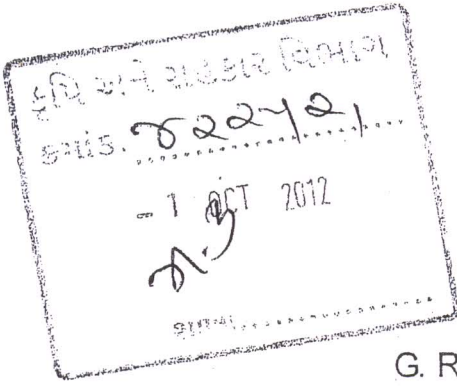 કૃષિ અને સહકાર વિભાગ
ક્રમાંક.
- 1 OCT 2012
શાખા
G. R